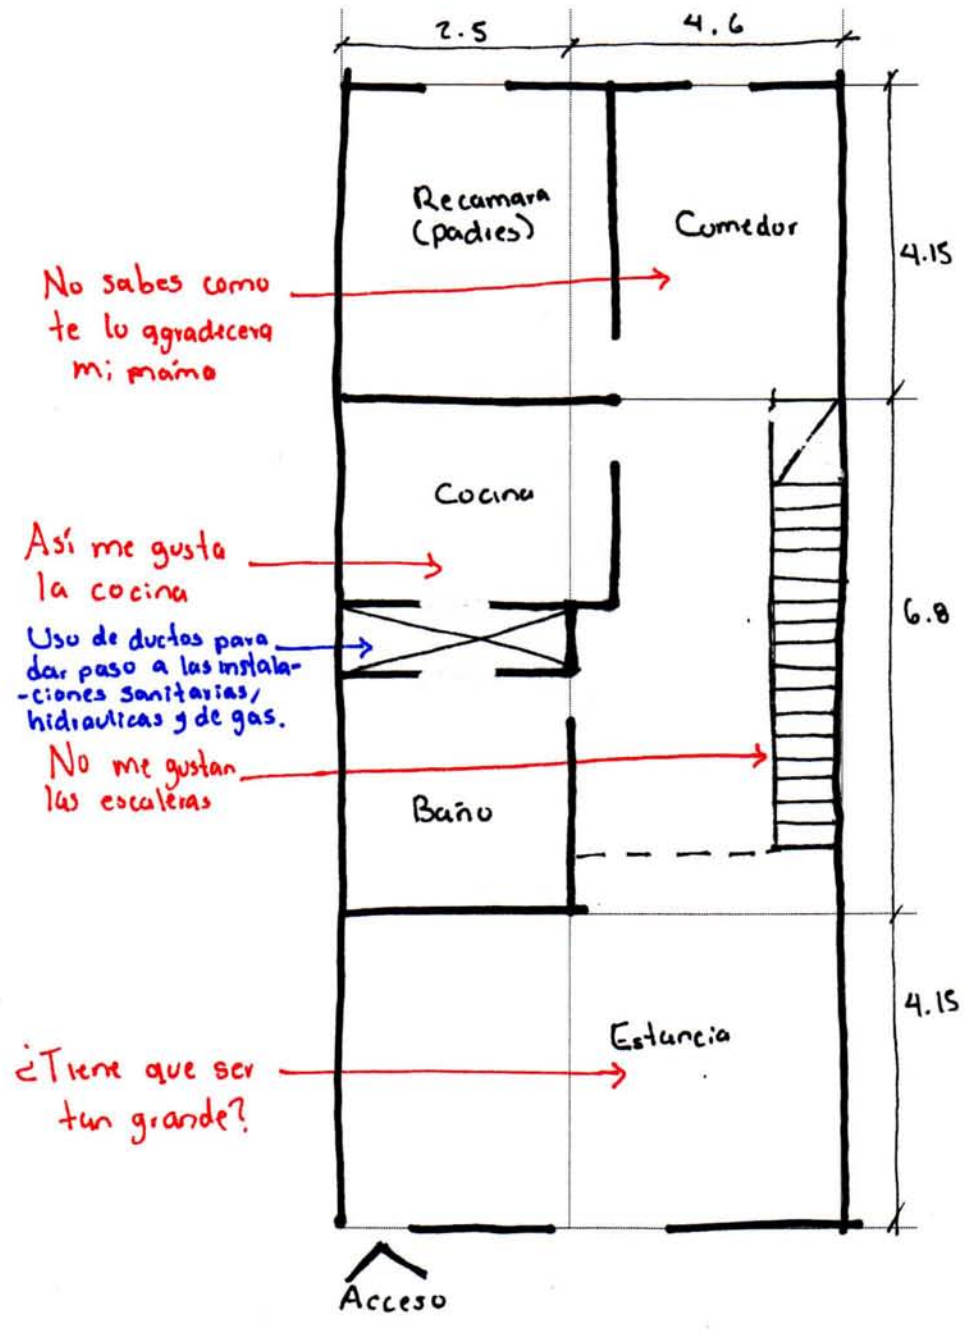 2.5
4.6
Recamara
(padres)
Comedor
4.15
No sabes como
te lo agradecera
mi mámá
Cocina
Así me gusta
la cocina
6.8
Uso de ductos para
dar paso a las instala-
-ciones sanitarias,
hidraulicas y de gas.
No me gustan
las escaleras
Baño
4.15
Estancia
¿Tiene que ser
tan grande?
Acceso